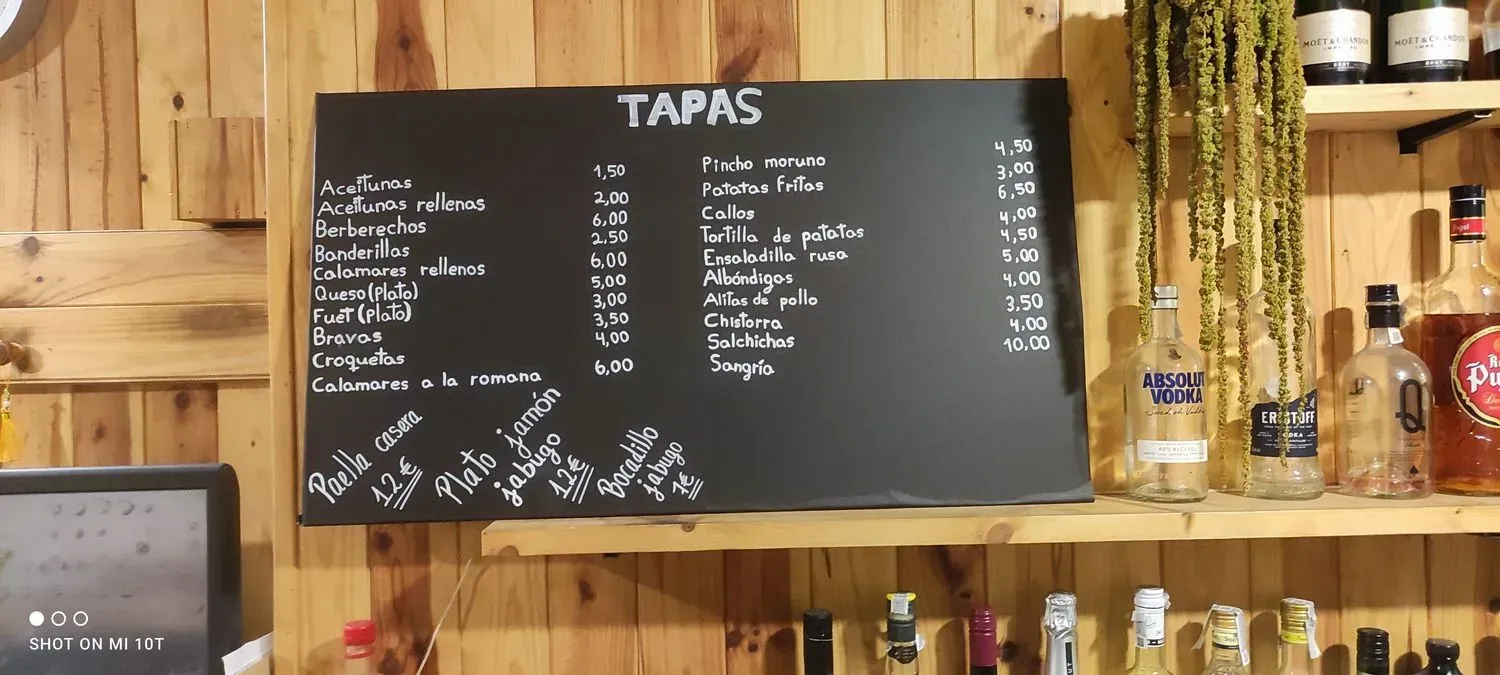 TAPAS
Aceitunas 1,50
Aceitunas rellenas 2,00
Berberechos 6,00
Banderillas 2,50
Calamares rellenos 6,00
Queso (plato) 5,00
Fuet (plato) 3,00
Bravas 3,50
Croquetas 4,00
Calamares a la romana 6,00
Pincho moruno 4,50
Patatas fritas 3,00
Callos 6,50
Tortilla de patatas 4,00
Ensaladilla rusa 4,50
Albóndigas 5,00
Alitas de pollo 4,00
Chistorra 3,50
Salchichas 4,00
Sangría 10,00
Paella casera
12€
Plato jamón
jabugo
12€
Bocadillo
jabugo
7€
MOËT & CHANDON
IMPERIAL
BRUT
MOËT & CHANDON
IMPERIAL
BRUT
ABSOLUT
VODKA
ER
OFF
Q
Pujol
SHOT ON MI 10T